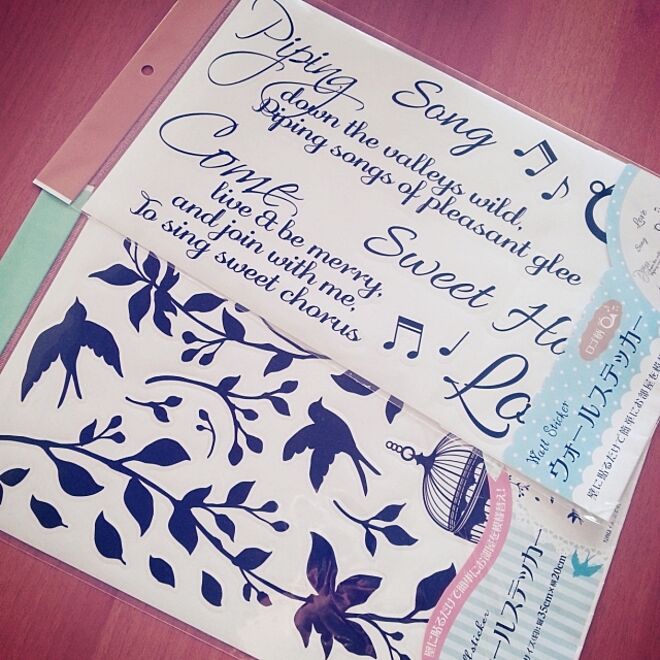 Piping Song
down the valleys wild,
Piping songs of pleasant glee
Come
live & be merry,
and join with me,
To sing sweet chorus
Sweet
Love
Song
ロゴ柄
Wall Sticker
ウォールステッカー
壁に貼るだけで簡単にお部屋を模
壁に貼るだけで簡単にお部屋を模様替え!
sticker
ールステッカー
サイズ(約):縦35cm×横20cm